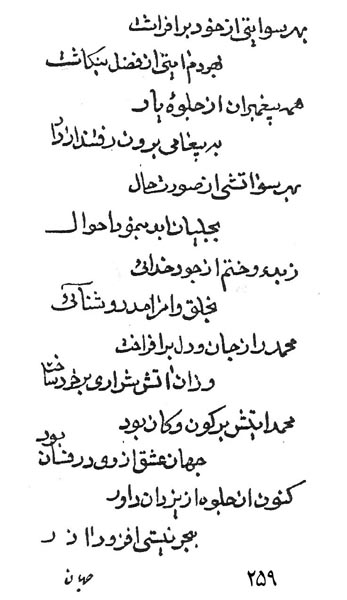 بهر سو ایتی از خود برافراشت
بهر دم ایتی از فضل بنگاشت
همه پیغمبران از جلوهٔ یار
به پیغامی برون رفتند از دار
بهر سو اتشی از صورت حال
بجلیان ابد بنمود احوال
ز بدء و ختم از جود خدائی
بخلق و امر امد روشنائی
محمد را ز جان و دل برافراخت
وزان اتش شراری بر خرد ساخت
محمد ایتش بر کون و کان بود
جهان عشق ازوی در فشان بود
کنون از جلوه از یزدان داور
بجر نیستی افزود
جهان
۲۵۹